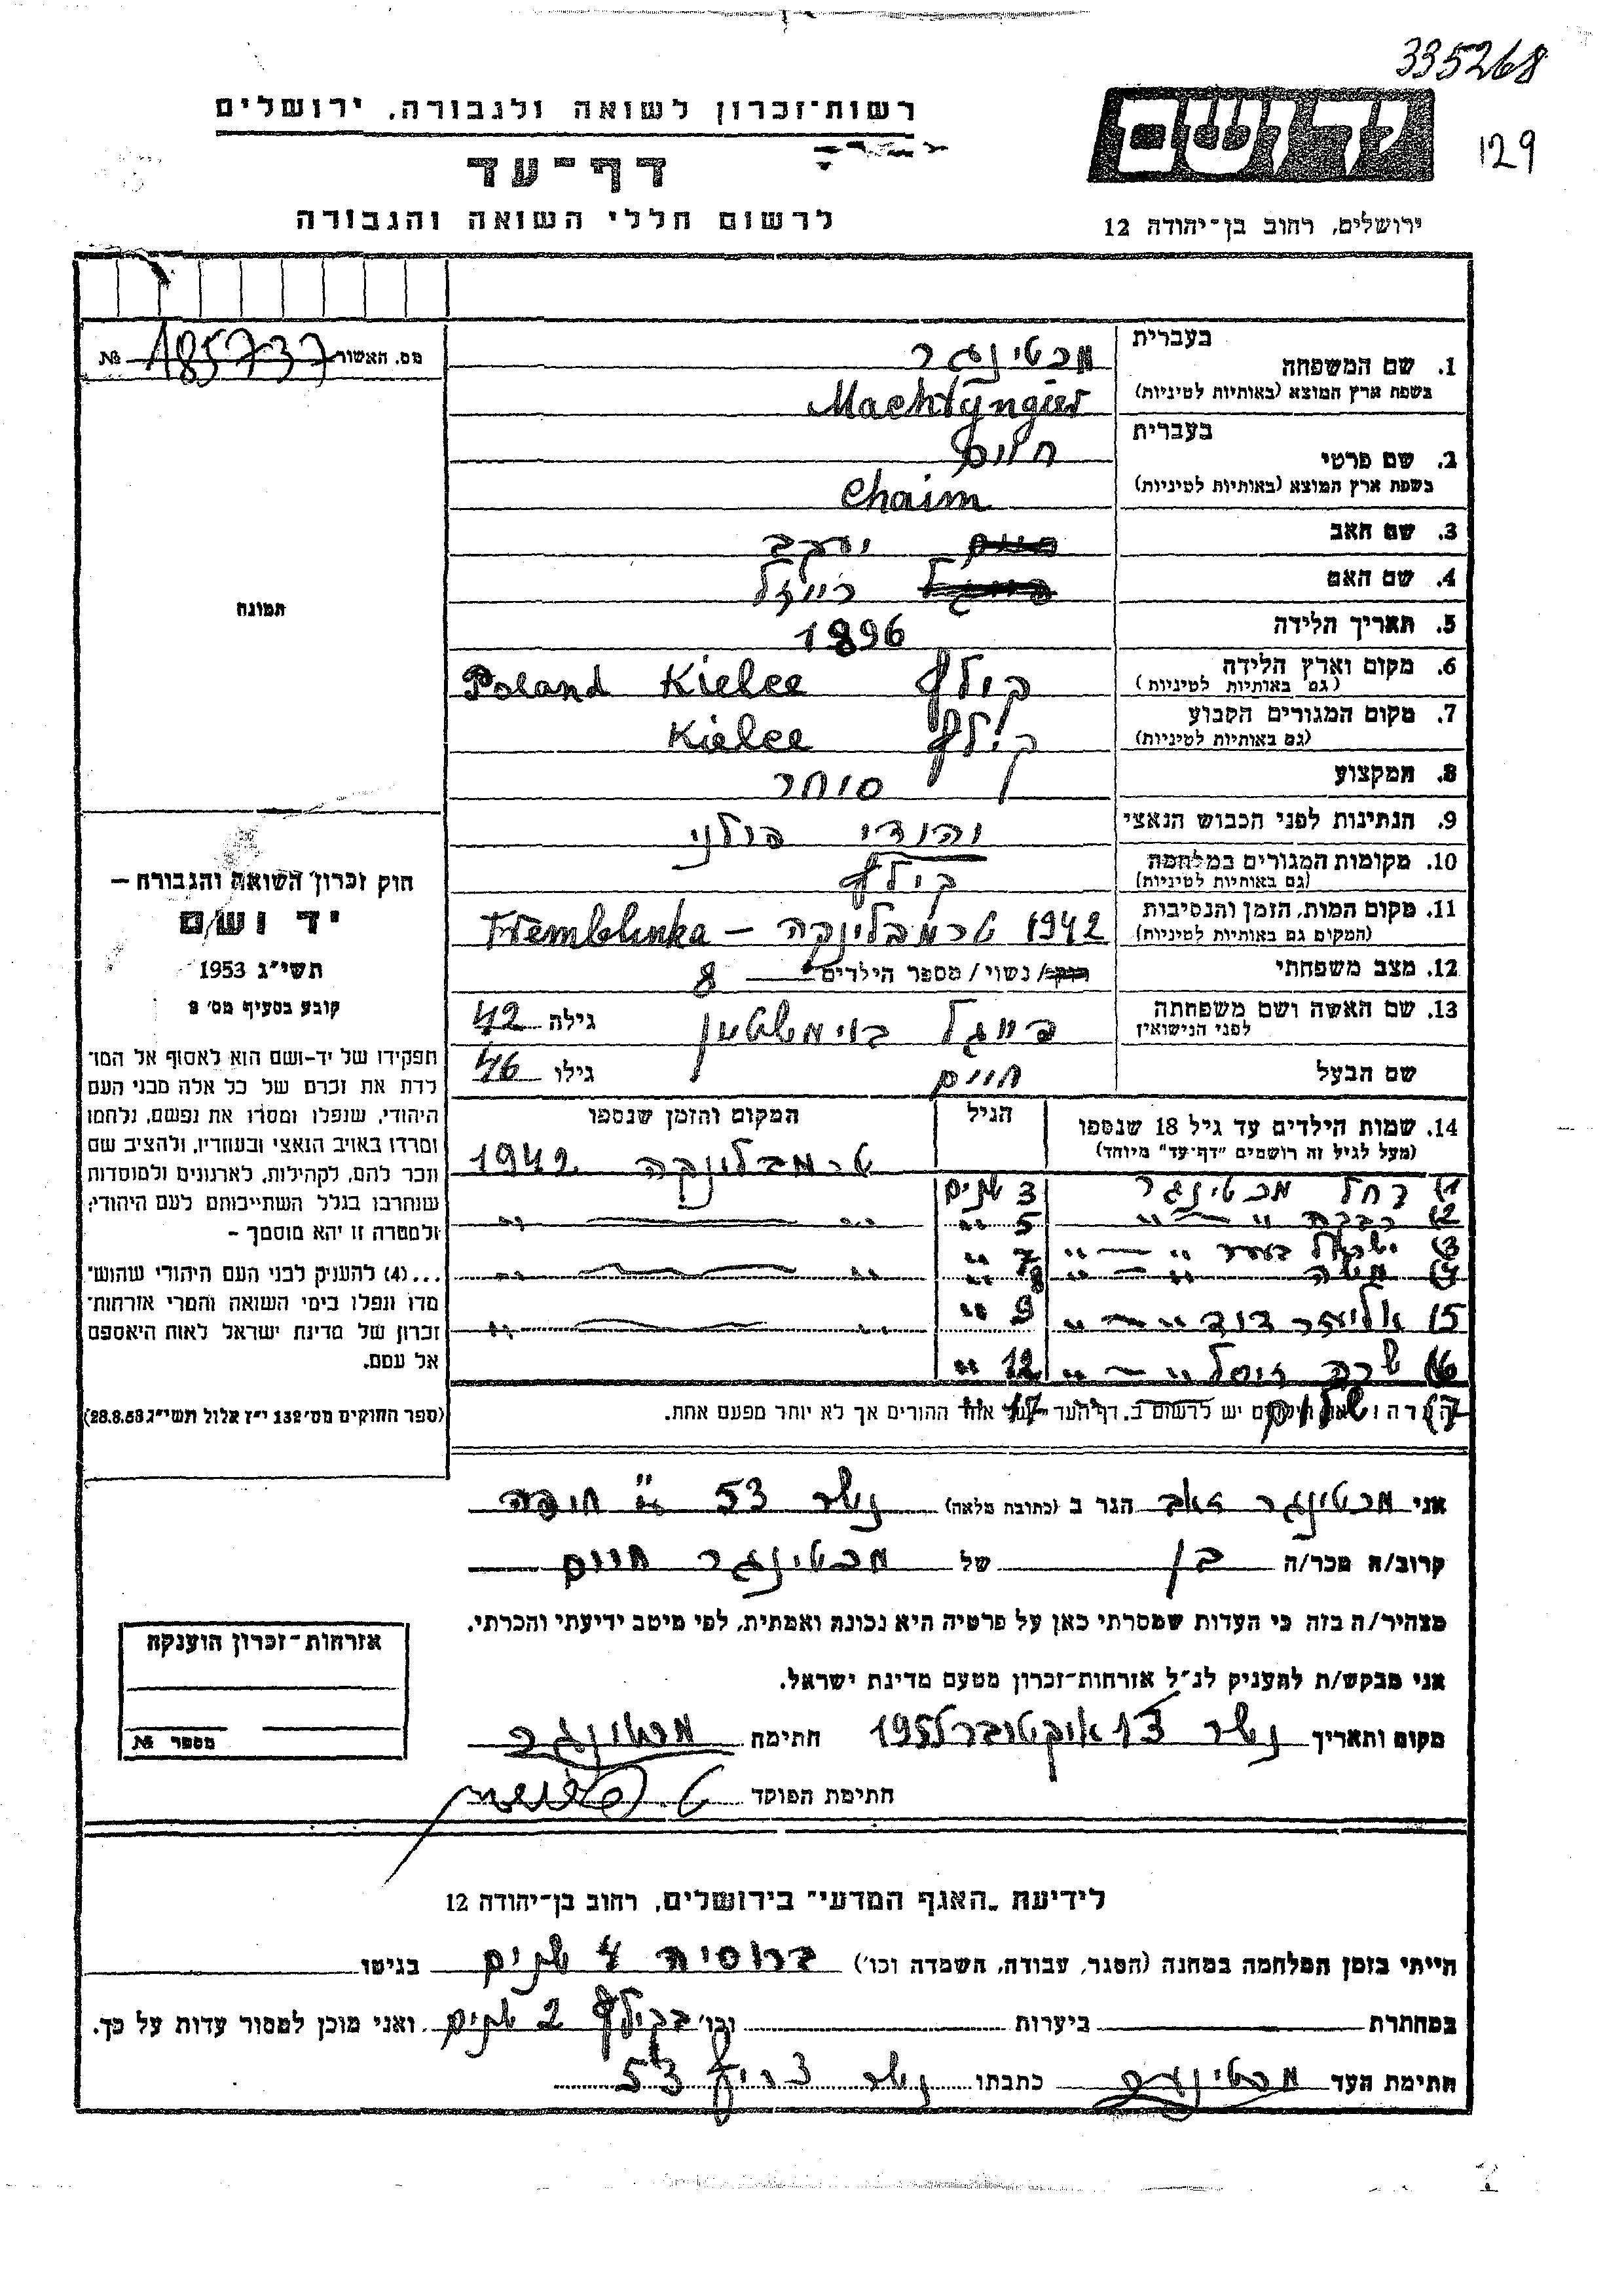 335268
129
רשות־זכרון לשואה ולגבורה, ירושלים
דף־עד
לרשום חללי השואה והגבורה
ירושלים, רחוב בן־יהודה 12
מס. האשור № 185737
תמונה
בעברית
1. שם המשפחה מכטינגר
בשפת ארץ המוצא (באותיות לטיניות) Machtyngier
בעברית
2. שם פרטי חיים
בשפת ארץ המוצא (באותיות לטיניות) Chaim
3. שם האב יעקב
4. שם האם רייזל
5. תאריך הלידה 1896
6. מקום וארץ הלידה קילץ Kielce Poland
(גם באותיות לטיניות)
7. מקום המגורים הקבוע קילץ Kielce
(גם באותיות לטיניות)
8. המקצוע סוחר
9. הנתינות לפני הכבוש הנאצי יהודי פולני
10. מקומות המגורים במלחמה קילץ
(גם באותיות לטיניות)
11. מקום המות, הזמן והנסיבות 1942 טרמבלינקה – Tremblinka
(המקום גם באותיות לטיניות)
12. מצב משפחתי רוק/ נשוי / מספר הילדים 8
13. שם האשה ושם משפחתה לפני הנישואין גילה 42
שם הבעל חיים גילו 46
14. שמות הילדים עד גיל 18 שנספו
(מעל לגיל זה רושמים "דף־עד" מיוחד)
הגיל
המקום והזמן שנספו
טרמבלינקה 1942
1) רחל מכטינגר 3 שנים
2) רבקה " — " 5 "
3) ישראל " — " 7 "
4) משה " — " 8 "
5) אליעזר דוד " — " 9 "
6) שרה זיסל " — " 12 "
7) שלום 17
יש לרשום ב. דף העד של אחד ההורים אך לא יותר מפעם אחת.
חוק זכרון השואה והגבורה —
יד ושם
תשי"ג 1953
קובע בסעיף מס׳ 8
תפקידו של יד-ושם הוא לאסוף אל המו־
לדת את זכרם של כל אלה מבני העם
היהודי, שנפלו ומסרו את נפשם, נלחמו
ומרדו באויב הנאצי ובעוזריו, ולהציב שם
וזכר להם, לקהילות, לארגונים ולמוסדות
שנחרבו בגלל השתייכותם לעם היהודי;
ולמטרה זו יהא מוסמך –
...(4) להעניק לבני העם היהודי שהוש־
מדו ונפלו בימי השואה והמרי אזרחות־
זכרון של מדינת ישראל לאות היאספם
אל עמם.
(ספר החוקים מס׳ 132 י"ז אלול תשי"ג 28.8.53)
אני מכטינגר זאב הגר ב (כתובת מלאה) נשר 53 ע"י חיפה
קרוב/ה מכר/ה בן של מכטינגר חיים
מצהיר/ה בזה כי העדות שמסרתי כאן על פרטיה היא נכונה ואמתית, לפי מיטב ידיעתי והכרתי.
אני מבקש/ת להעניק לנ"ל אזרחות־זכרון מטעם מדינת ישראל.
מקום ותאריך נשר אוקטובר חתימה מכטינגר
חתימת הפוקד
אזרחות־זכרון הוענקה
מספר №
לידיעת "האגף המדעי" בירושלים, רחוב בן־יהודה 12
הייתי בזמן המלחמה במחנה (הסגר, עבודה, השמדה וכו׳) ברוסיה 4 שנים בגיטו
במחתרת ביערות וכו׳ בקילץ 2 שנים ואני מוכן למסור עדות על כך.
חתימת העד מכטינגר כתבתו נשר צריף 53